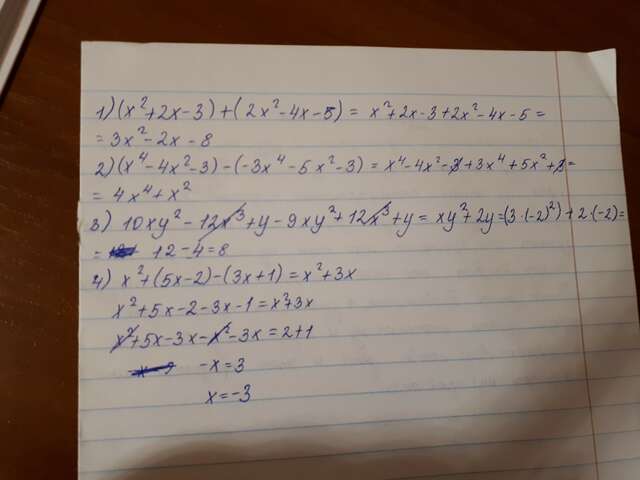 1) (x²+2x-3)+(2x²-4x-5)= x²+2x-3+2x²-4x-5=
=3x²-2x-8
2) (x⁴-4x²-3)-(-3x⁴-5x²-3)=x⁴-4x²-3+3x⁴+5x²+3=
=4x⁴+x²
3) 10xy²-12x³+y-9xy²+12x³+y=xy²+2y=(3·(-2)²)+2·(-2)=
= 12-4=8
4) x²+(5x-2)-(3x+1)=x²+3x
x²+5x-2-3x-1=x²+3x
x²+5x-3x-x²-3x=2+1
-x=3
x=-3